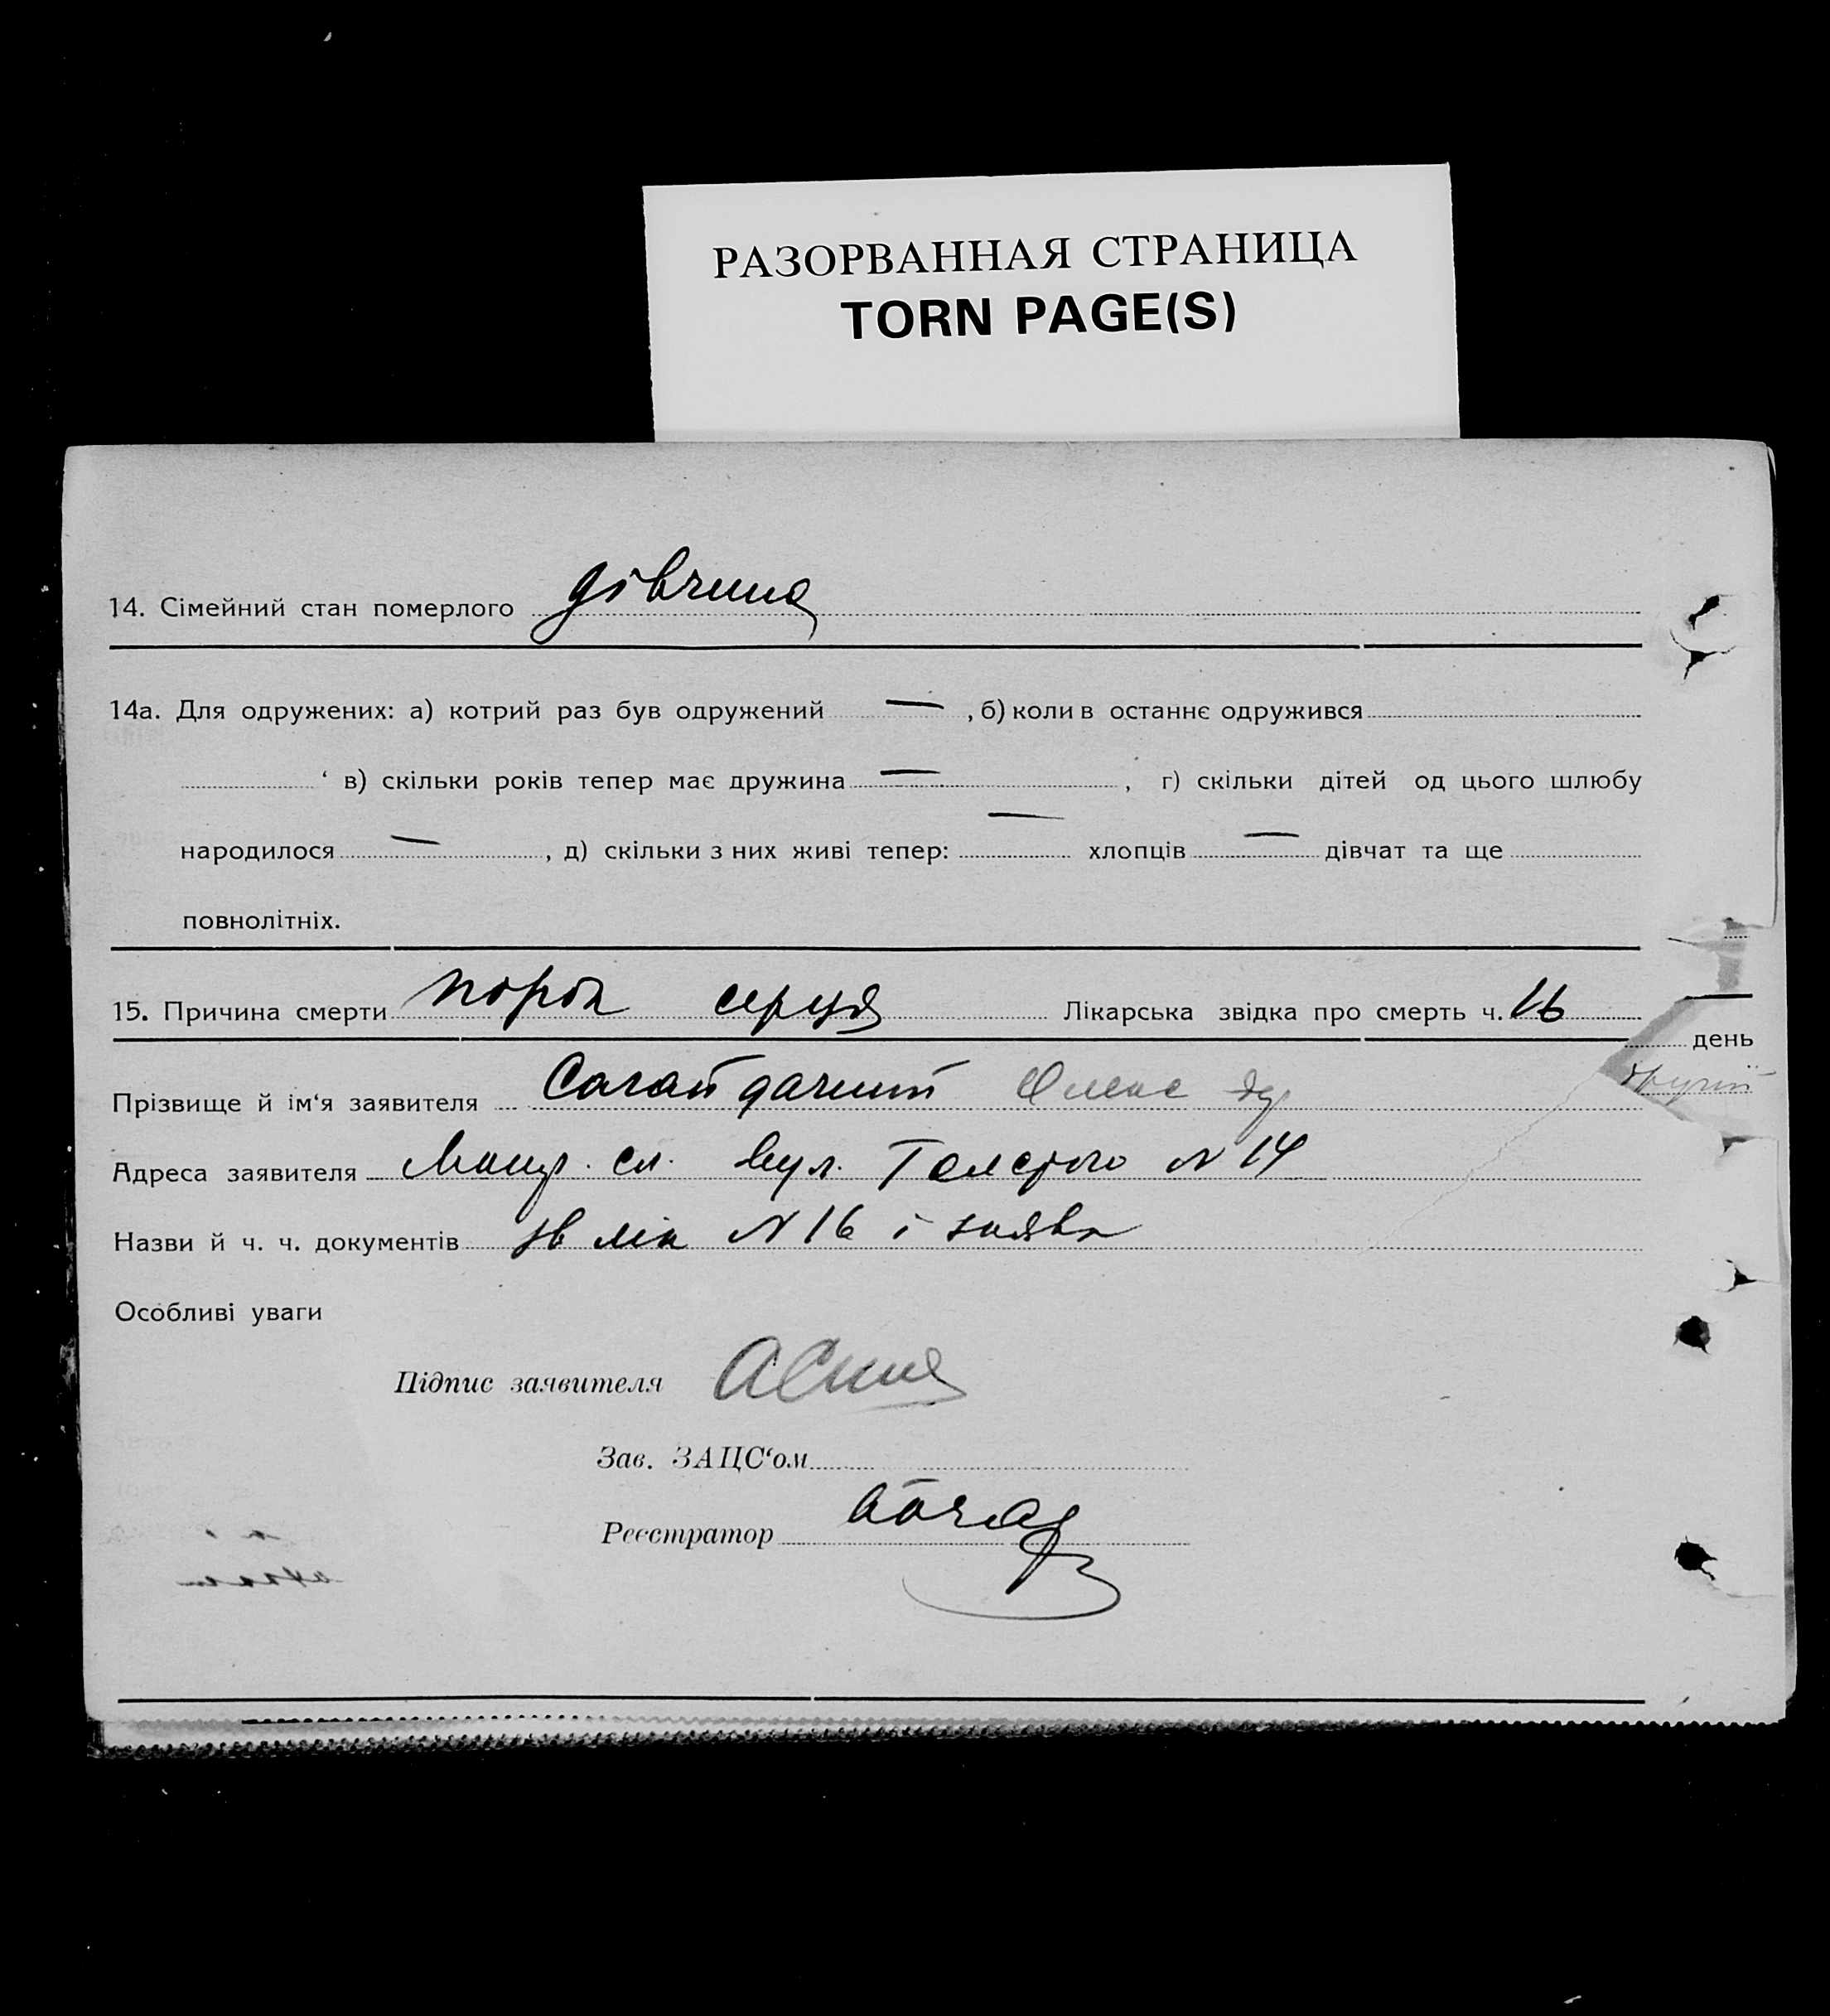 РАЗОРВАННАЯ СТРАНИЦА
TORN PAGE(S)
14. Сімейний стан померлого дівчина
14а. Для одружених: а) котрий раз був одружений — , б) коли в останнє одружився
‘ в) скільки років тепер має дружина — , г) скільки дітей од цього шлюбу
народилося — , д) скільки з них живі тепер: — хлопців — дівчат та ще
повнолітніх.
15. Причина смерти порок серця Лікарська звідка про смерть ч. 16
день
Прізвище й ім‘я заявителя Сагайдачний Олекс
Адреса заявителя сл. вул. Толстого N 14
Назви й ч. ч. документів зв лік N 16 і заява
Особливі уваги
Підпис заявителя
Зав. ЗАЦС‘ом
Реєстратор